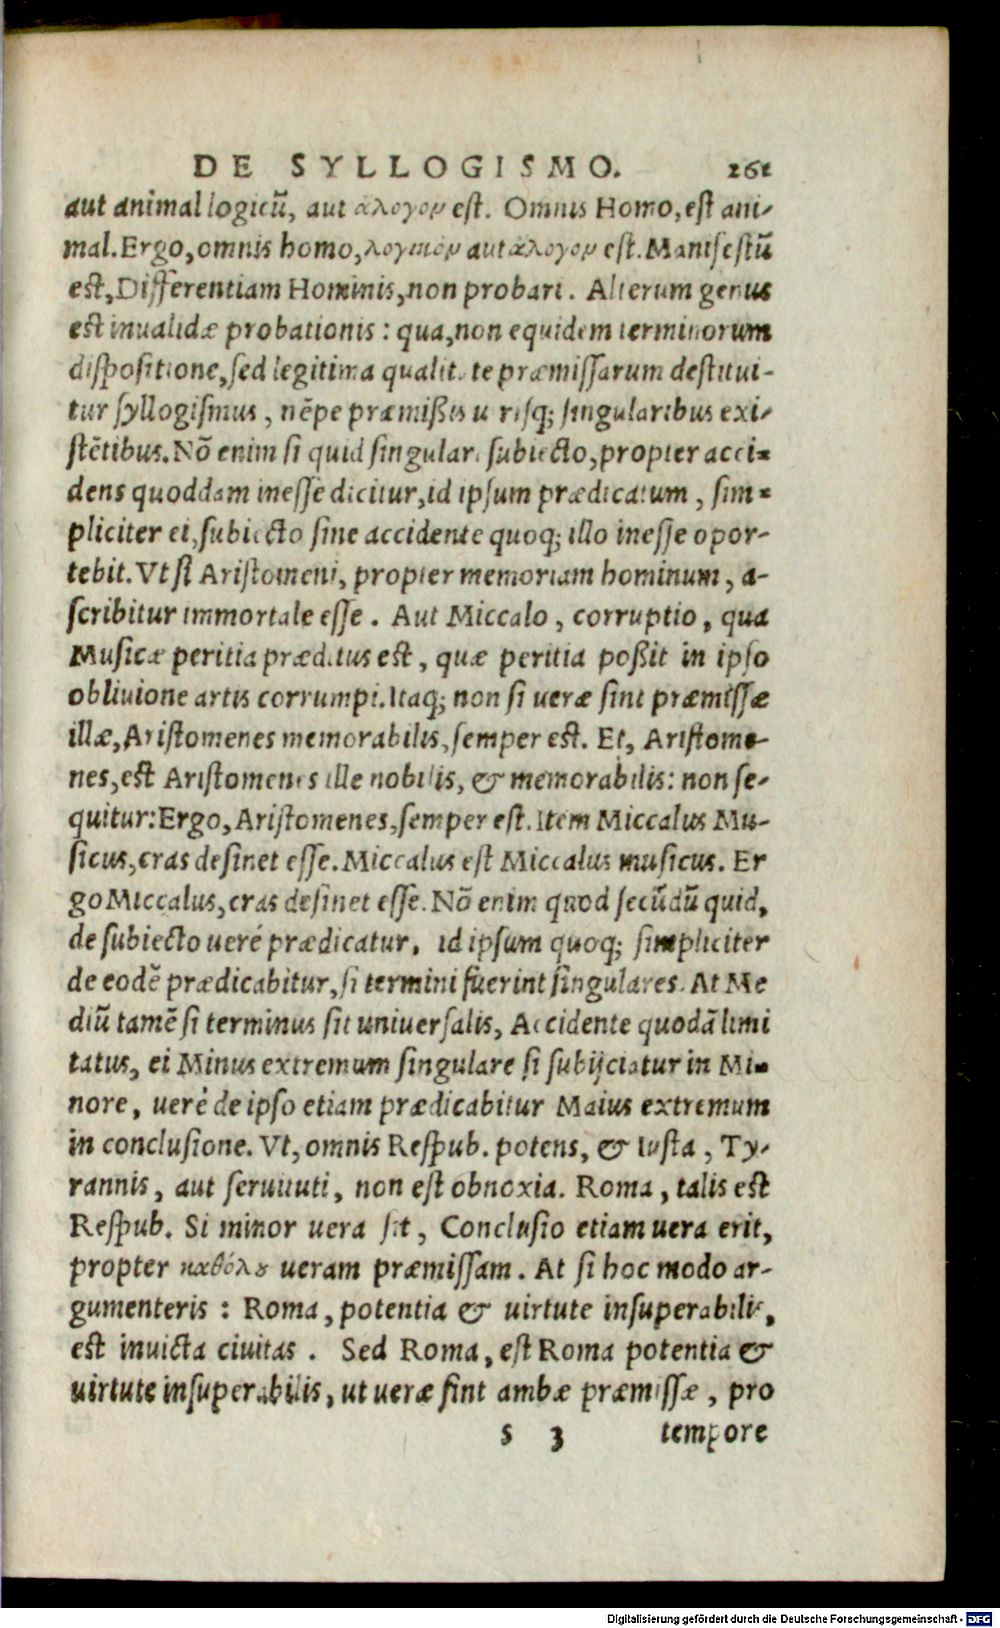 DE SYLLOGISMO. 261
aut animal logicũ, aut ἄλογον est. Omnis Homo, est ani-
mal. Ergo, omnis homo, λογικὸν aut ἄλογον est. Manifestũ
est, Differentiam Hominis, non probari. Alterum genus
est inualidæ probationis: qua, non equidem terminorum
dispositione, sed legitima qualitate præmissarum destitui-
tur syllogismus, nẽpe præmißis utrisq; singularibus exi-
stẽtibus. Nõ enim si quid singulari subiecto, propter acci-
dens quoddam inesse dicitur, id ipsum prædicatum, sim-
pliciter ei, subiecto sine accidente quoq; illo inesse opor-
tebit. Vt si Aristomeni, propter memoriam hominum, a-
scribitur immortale esse. Aut Miccalo, corruptio, qua
Musicæ peritia præditus est, quæ peritia poßit in ipso
obliuione artis corrumpi. Itaq; non si ueræ sint præmissæ
illæ, Aristomenes memorabilis, semper est. Et, Aristome-
nes, est Aristomenes ille nobilis, & memorabilis: non se-
quitur: Ergo, Aristomenes, semper est. Item Miccalus Mu-
sicus, cras desinet esse. Miccalus est Miccalus musicus. Er
go Miccalus, cras desinet esse. Nõ enim quod secũdũ quid,
de subiecto ueré prædicatur, id ipsum quoq; simpliciter
de eodẽ prædicabitur, si termini fuerint singulares. At Me
diũ tamẽ si terminus sit uniuersalis, Accidente quodã limi
tatus, ei Minus extremum singulare si subijciatur in Mi-
nore, ueré de ipso etiam prædicabitur Maius extremum
in conclusione. Vt, omnis Respub. potens, & Iusta, Ty-
rannis, aut seruituti, non est obnoxia. Roma, talis est
Respub. Si minor uera sit, Conclusio etiam uera erit,
propter καθόλου ueram præmissam. At si hoc modo ar-
gumenteris: Roma, potentia & uirtute insuperabilis,
est inuicta ciuitas. Sed Roma, est Roma potentia &
uirtute insuperabilis, ut ueræ sint ambæ præmissæ, pro
s 3 tempore
Digitalisierung gefördert durch die Deutsche Forschungsgemeinschaft - DFG